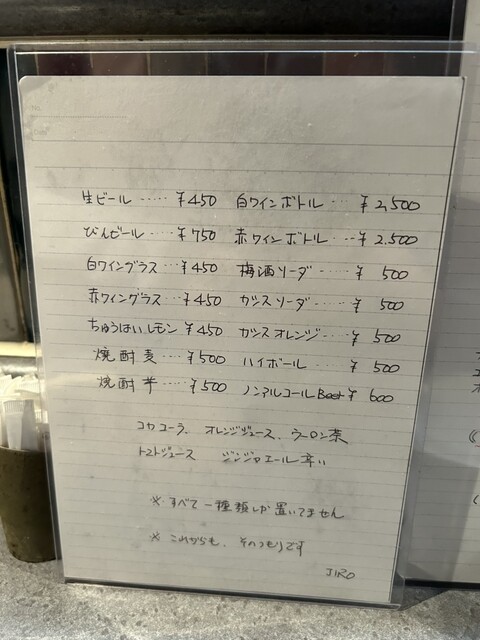 生ビール ····· ¥450 白ワインボトル ···· ¥2,500
びんビール ···· ¥750 赤ワインボトル ··· ¥2.500
白ワイングラス ··· ¥450 梅酒ソーダ ····· ¥500
赤ワイングラス ··· ¥450 カシスソーダ ···· ¥500
ちゅうはいレモン ¥450 カシスオレンジ ···· ¥500
焼酎麦 ···· ¥500 ハイボール ···· ¥500
焼酎芋 ····· ¥500 ノンアルコールBeer ¥600
コカコーラ、オレンジジュース、ウーロン茶
トマトジュース ジンジャエール辛い
※ すべて一種類しか置いてません
※ これからも、そのつもりです
JIRO